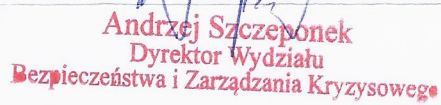 Andrzej Szczeponek
Dyrektor Wydziału
Bezpieczeństwa i Zarządzania Kryzysowego